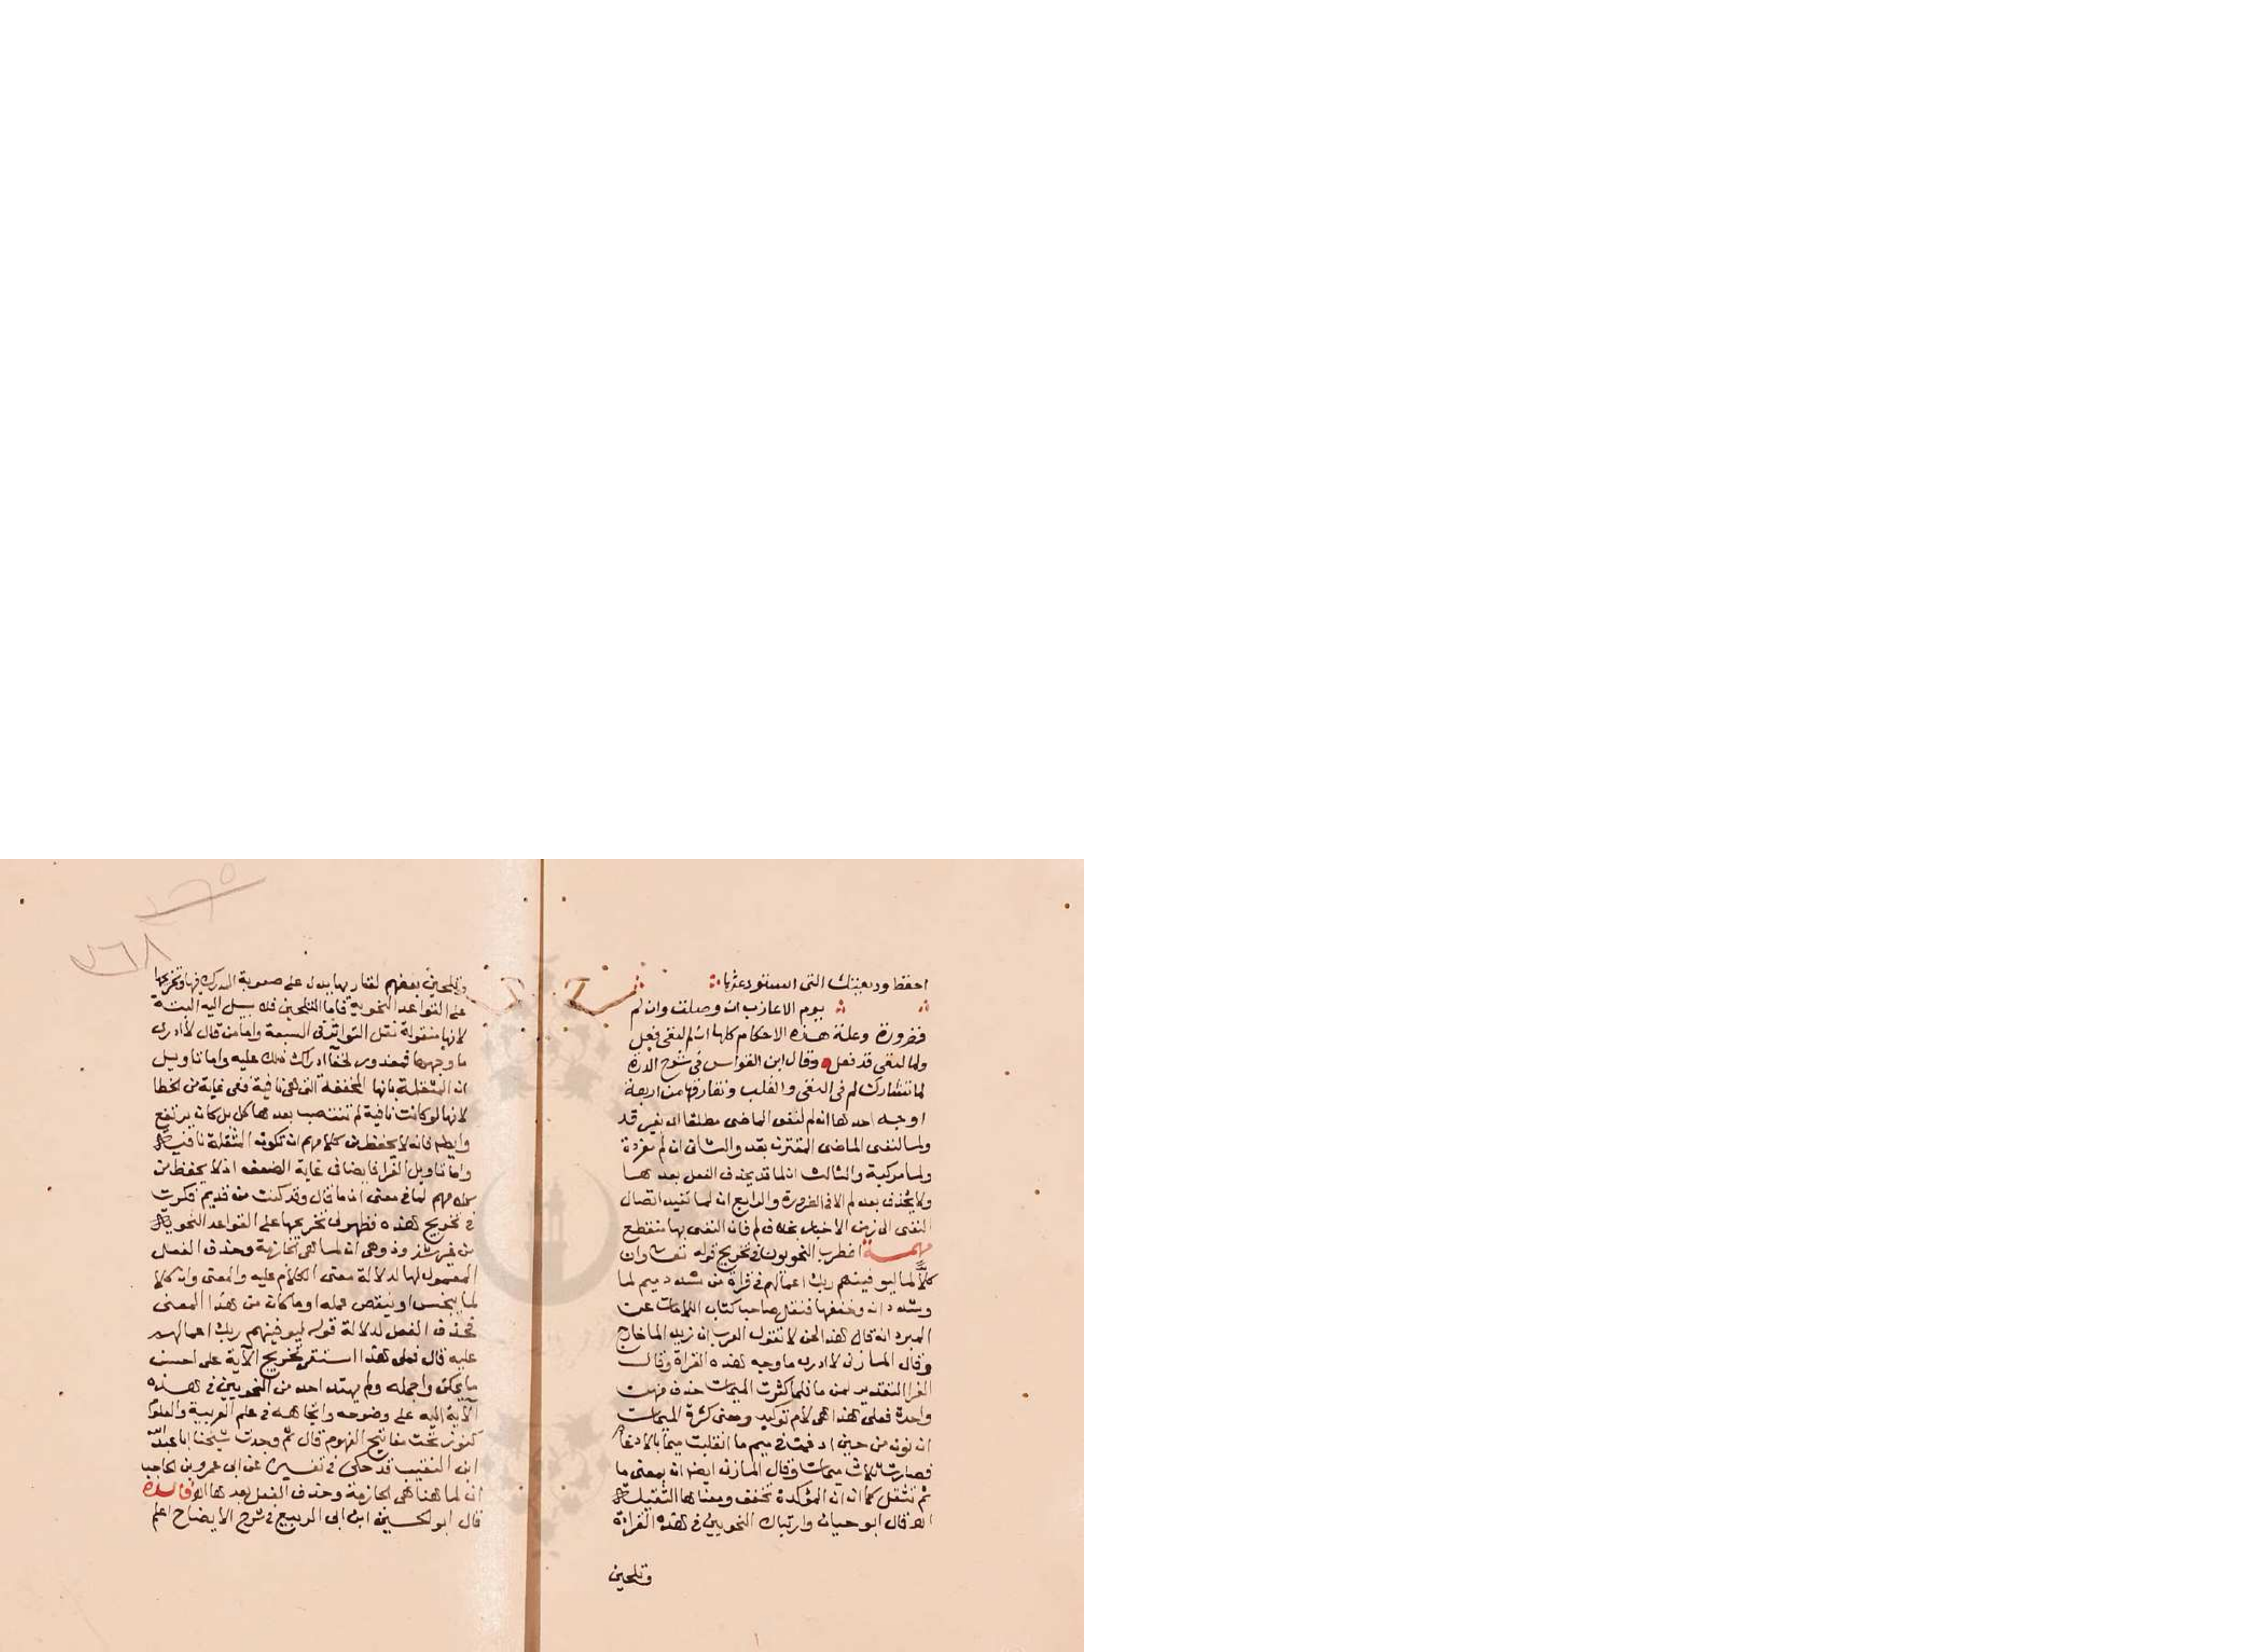 احفظ وديعتك التى استودعتها
يوم الاعازب ان وصلت وان لم
فضرورة وعلة هذه الاحكام كلها ان لم لنفى فعل
ولما لنفى قد فعل وقال ابن القواس فى شرح الدرة
لما تشارك لم فى النفى والقلب وتفارقها من اربعة
اوجه احدها ان لم لنفى الماضى مطلقا اى بغير قد
ولما لنفى الماضى المقترن بقد والثانى ان لم مفردة
ولما مركبة والثالث ان لما قد يحذف الفعل بعدها
ولا يحذف بعد لم الا فى الضرورة والرابع ان لما تفيد اتصال
النفى الى زمن الاخبار بخلاف لم فان النفى بها منقطع
مهمة اضطرب النحويون فى تخريج قوله تعالى وان
كلا لما ليوفينهم ربك اعمالهم فى قراة من شدد ميم لما
وشدد ان وخففها فنقل صاحب كتاب اللامات عن
المبرد انه قال هذا لحن لا تقول العرب ان زيد الما خارج
وقال المازنى لا ادرى ما وجه هذه القراة وقال
الفرا التقدير لمن ما فلما كثرت الميمات حذف منهن
واحدة فعلى هذا هى لام توكيد ومعنى كثرة الميمات
ان نون من حين ادغمت فى ميم ما انقلبت ميما بالادغام
فصارت ثلاث ميمات وقال المازنى ايضا ان بمعنى ما
ثم تثقل كما ان ان المؤكدة تخفف ومعناها الثقيلة
اه قال ابو حيان وارتباك النحويين فى هذه القراءة
وتلحين
وتلحين بعضهم لقاريها يدل على صعوبة المدرك فيها وتخريجها
على القواعد النحوية فاما التلحين فلا سبيل اليه البتة
لانها منقولة نقل التواتر فى السبعة واما من قال لا ادرى
ما وجهها فمعذور لخفا ادراك ذلك عليه واما تاويل
ان المثقلة بانها المخففة التى هى نافية ففى غاية من الخطا
لانها لو كانت نافية لم تنتصب بعدها كل بل كان يرتفع
وايضا فانه لا يحفظ من كلامهم ان تكون المثقلة نافية
واما تاويل الفرا فايضا فى غاية الضعف اذ لا يحفظ من
كلامهم لما فى معنى لمن ما قال وقد كنت من قديم فكرت
فى تخريج هذه فظهر لى تخريجها على القواعد النحوية
من غير شذوذ وهى ان لما هى الجازمة وحذف الفعل
المعمول لها لدلالة معنى الكلام عليه والمعنى وان كلا
لما يبخس او ينقص عمله او ما كان من هذا المعنى
فحذف الفعل لدلالة قوله ليوفينهم ربك اعمالهم
عليه قال فعلى هذا استقر تخريج الآية على احسن
ما يمكن واجمله ولم يهتد احد من النحويين فى هذه
الآية اليه على وضوحه واتجاهه فى علم العربية والعلوم
كنوز تحت مفاتيح الفهوم قال ثم وجدت شيخنا ابا عبدالله
ابن النقيب قد حكى فى تفسيره عن ابى عمرو بن الحاجب
ان لما هنا هى الجازمة وحذف الفعل بعدها اه فائدة
قال ابو الحسين ابن ابى الربيع فى شرح الايضاح اعلم